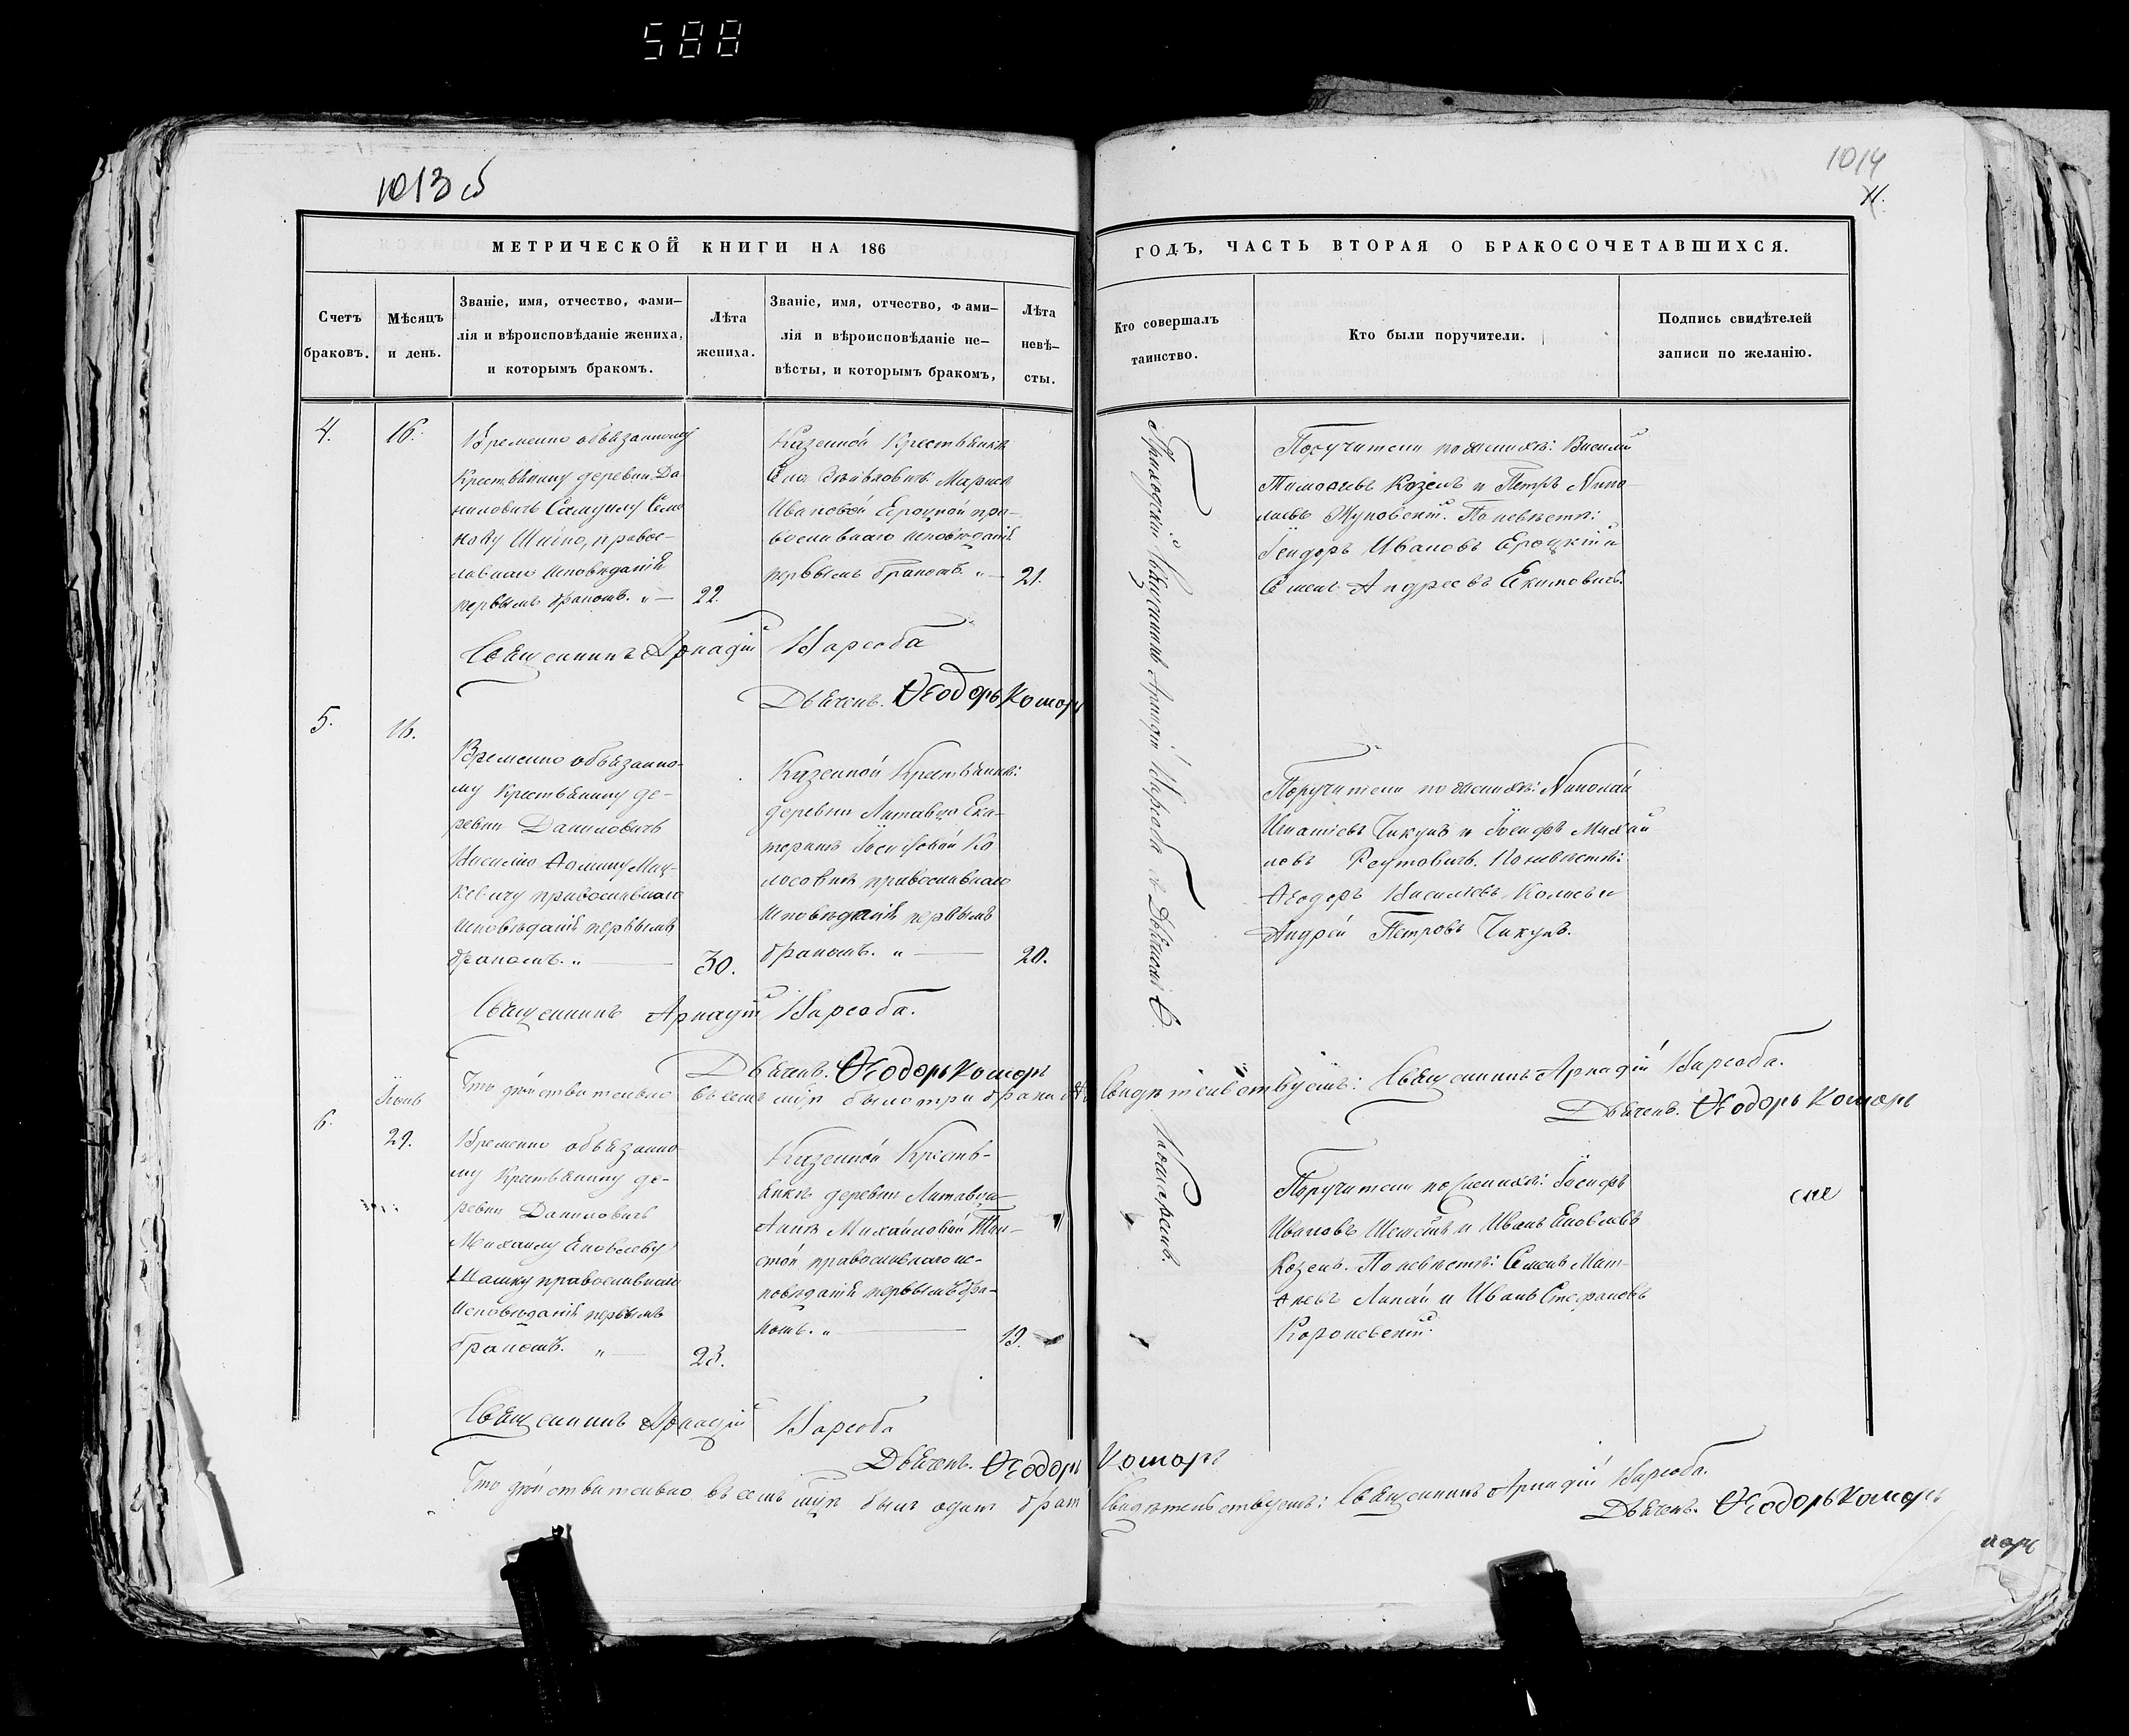 588
1013 об
1014
11.
МЕТРИЧЕСКОЙ КНИГИ НА 186
ГОДЪ, ЧАСТЬ ВТОРАЯ О БРАКОСОЧЕТАВШИХСЯ.
Счетъ
браковъ.
Мѣсяцъ
и день.
Званіе, имя, отчество, фами–
лія и вѣроисповѣданіе жениха,
и которымъ бракомъ.
Лѣта
жениха.
Званіе, имя, отчество, фами–
лія и вѣроисповѣданіе не–
вѣсты, и которымъ бракомъ,
Лѣта
невѣ–
сты.
Кто совершалъ
таинство.
Кто были поручители.
Подпись свидѣтелей
записи по желанію.
4.
16.
Временно обязанному
Крестьянину деревни Да
ниловичъ Самуилу Семе
нову православнаго Исповѣданія
первымъ бракомъ. „ —
22.
Казенной Крестьянкѣ
Села
Ивановой Ероцкой пра–
вославнаго исповѣданія
первымъ бракомъ. „ —
21.
Приходскій Священникъ Аркадій Нарсоба съ Дьячкомъ Ѳ. Комаромъ.
Поручители по женихѣ: Василій
Тимоѳеевъ Козелъ и Петръ Нико
лаевъ Жуковскій. По невѣстѣ:
Ѳеодоръ Ивановъ Ероцкій и
Семенъ Андреевъ Екимовичъ.
Священникъ Аркадій Нарсоба
Дьячекъ. Ѳеодоръ Комаръ
5.
16.
Временно обязанно–
му Крестьянину де–
ревни Даниловичъ
Василію Ѳомину Мац–
кевичу православнаго
Исповѣданія первымъ
бракомъ. „ —
30.
Казенной Крестьянкѣ:
деревни Ека–
теринѣ Іосифовой Ко
лосовнѣ православнаго
исповѣданія первымъ
бракомъ. „ —
20.
Поручители по женихѣ: Николай
Игнатіевъ Чикунъ и Іосифъ Михай
ловъ Реутовичъ. По невѣстѣ:
Ѳеодоръ Васильевъ и
Андрей Петровъ Чикунъ.
Священникъ Аркадій Нарсоба.
Дьячекъ. Ѳеодоръ Комаръ
Что дѣйствительно въ семъ м–цѣ было три брака Свидѣтельствуемъ: Священникъ Аркадій Нарсоба.
Дьячекъ. Ѳеодоръ Комаръ
Іюнь
6.
29.
Временно обязанно
му Крестьянину де–
ревни Даниловичъ
Михаилу Яковлеву
Шашку православнаго
Исповѣданія первымъ
бракомъ. „ —
23.
Казенной Кресть–
янкѣ деревни
Аннѣ Михайловой Тол–
стой православнаго ис–
повѣданія первымъ бра–
комъ. „ —
19.
Поручители по женихѣ: Іосифъ
Ивановъ и Иванъ Яковлевъ
Козелъ. По невѣстѣ: Семенъ Мат–
ѳеевъ Липай и Иванъ Стефановъ
Королевскій.
Священникъ Аркадій Нарсоба
Дьячекъ. Ѳеодоръ Комаръ
Что дѣйствительно въ семъ м–цѣ былъ одинъ бракъ Свидѣтельствуемъ: Священникъ Аркадій Нарсоба.
Дьячекъ. Ѳеодоръ Комаръ